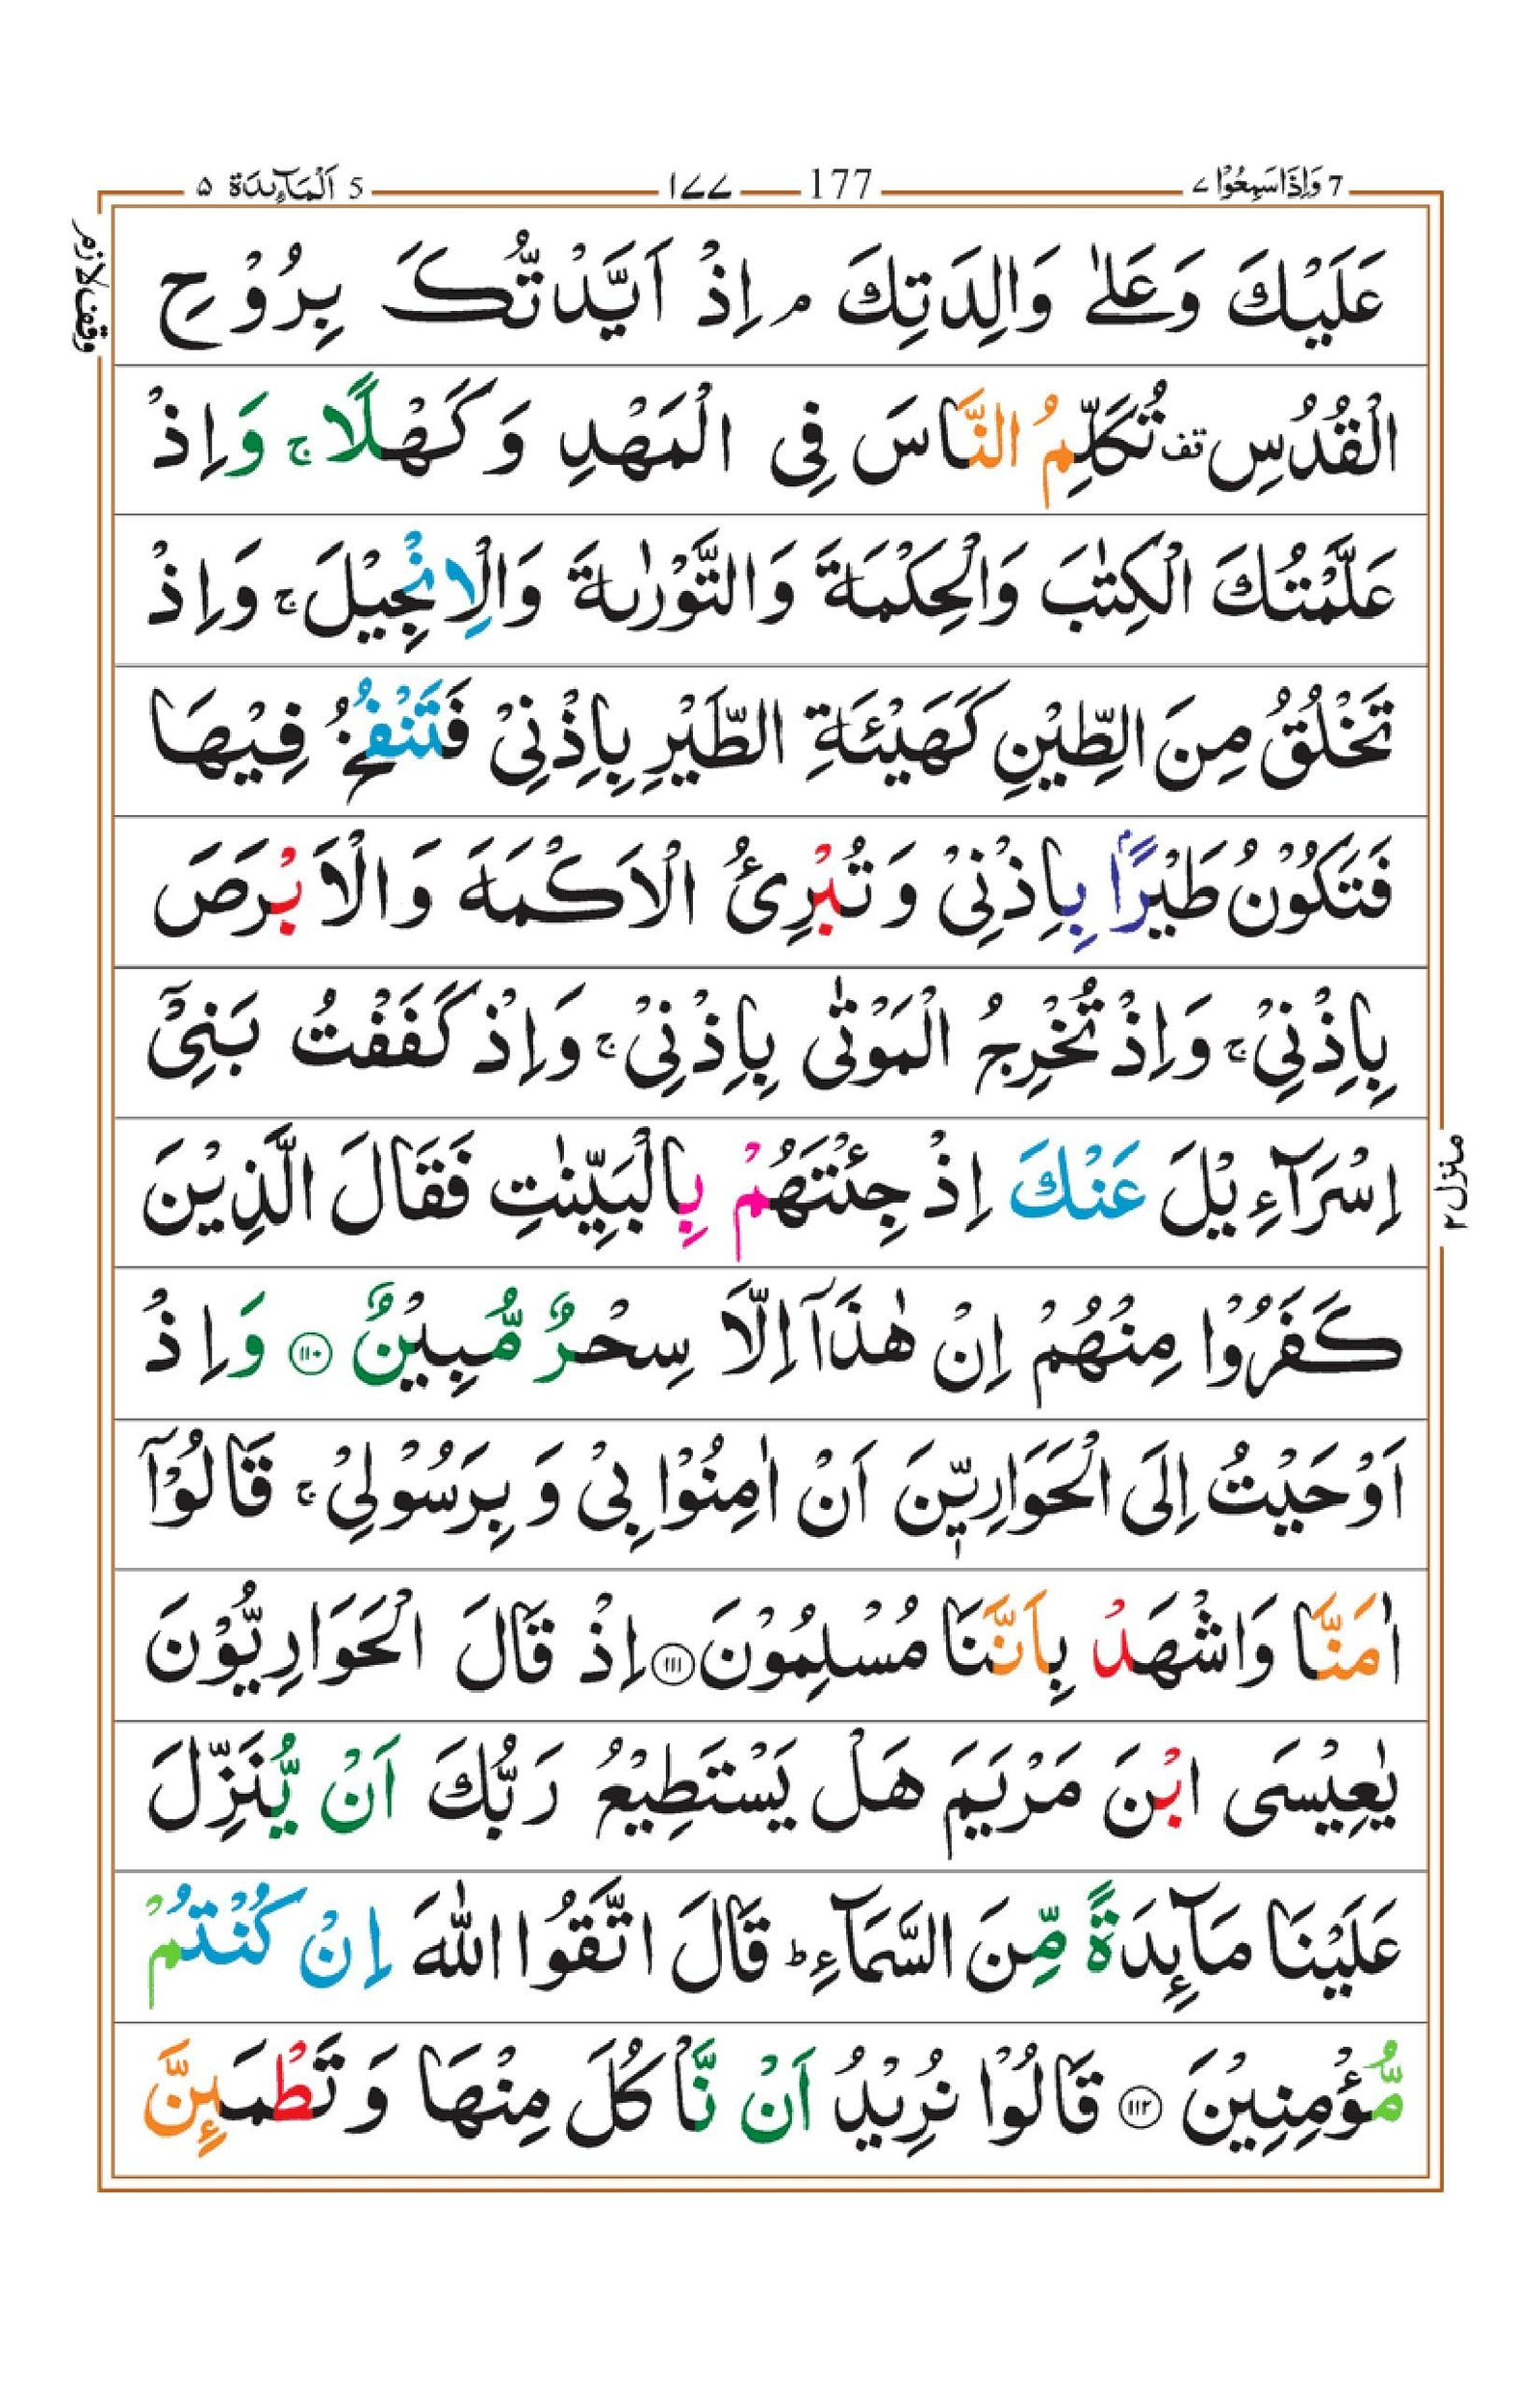 7 وَاِذَا سَمِعُوْا ٧ 177 ١٧٧ 5 اَلْمَآئِدَة ٥
وقف لازم
عَلَيْكَ وَعَلٰى وَالِدَتِكَ ۘ اِذْ اَيَّدْتُّكَ بِرُوْحِ
الْقُدُسِ قف تُكَلِّمُ النَّاسَ فِى الْمَهْدِ وَكَهْلًا ۚ وَاِذْ
عَلَّمْتُكَ الْكِتٰبَ وَالْحِكْمَةَ وَالتَّوْرٰىةَ وَالْاِنْجِيْلَ ۚ وَاِذْ
تَخْلُقُ مِنَ الطِّيْنِ كَهَيْئَةِ الطَّيْرِ بِاِذْنِىْ فَتَنْفُخُ فِيْهَا
فَتَكُوْنُ طَيْرًۢا بِاِذْنِىْ وَتُبْرِئُ الْاَكْمَهَ وَالْاَبْرَصَ
بِاِذْنِىْ ۚ وَاِذْ تُخْرِجُ الْمَوْتٰى بِاِذْنِىْ ۚ وَاِذْ كَفَفْتُ بَنِىْۤ
اِسْرَآءِيْلَ عَنْكَ اِذْ جِئْتَهُمْ بِالْبَيِّنٰتِ فَقَالَ الَّذِيْنَ
كَفَرُوْا مِنْهُمْ اِنْ هٰذَاۤ اِلَّا سِحْرٌ مُّبِيْنٌ ١١٠ وَاِذْ
اَوْحَيْتُ اِلَى الْحَوَارِيّٖنَ اَنْ اٰمِنُوْا بِىْ وَبِرَسُوْلِىْ ۚ قَالُوْۤا
اٰمَنَّا وَاشْهَدْ بِاَنَّنَا مُسْلِمُوْنَ ١١١ اِذْ قَالَ الْحَوَارِيُّوْنَ
يٰعِيْسَى ابْنَ مَرْيَمَ هَلْ يَسْتَطِيْعُ رَبُّكَ اَنْ يُّنَزِّلَ
عَلَيْنَا مَآئِدَةً مِّنَ السَّمَآءِ ؕ قَالَ اتَّقُوا اللّٰهَ اِنْ كُنْتُمْ
مُّؤْمِنِيْنَ ١١٢ قَالُوْا نُرِيْدُ اَنْ نَّاْكُلَ مِنْهَا وَتَطْمَئِنَّ
منزل ٢